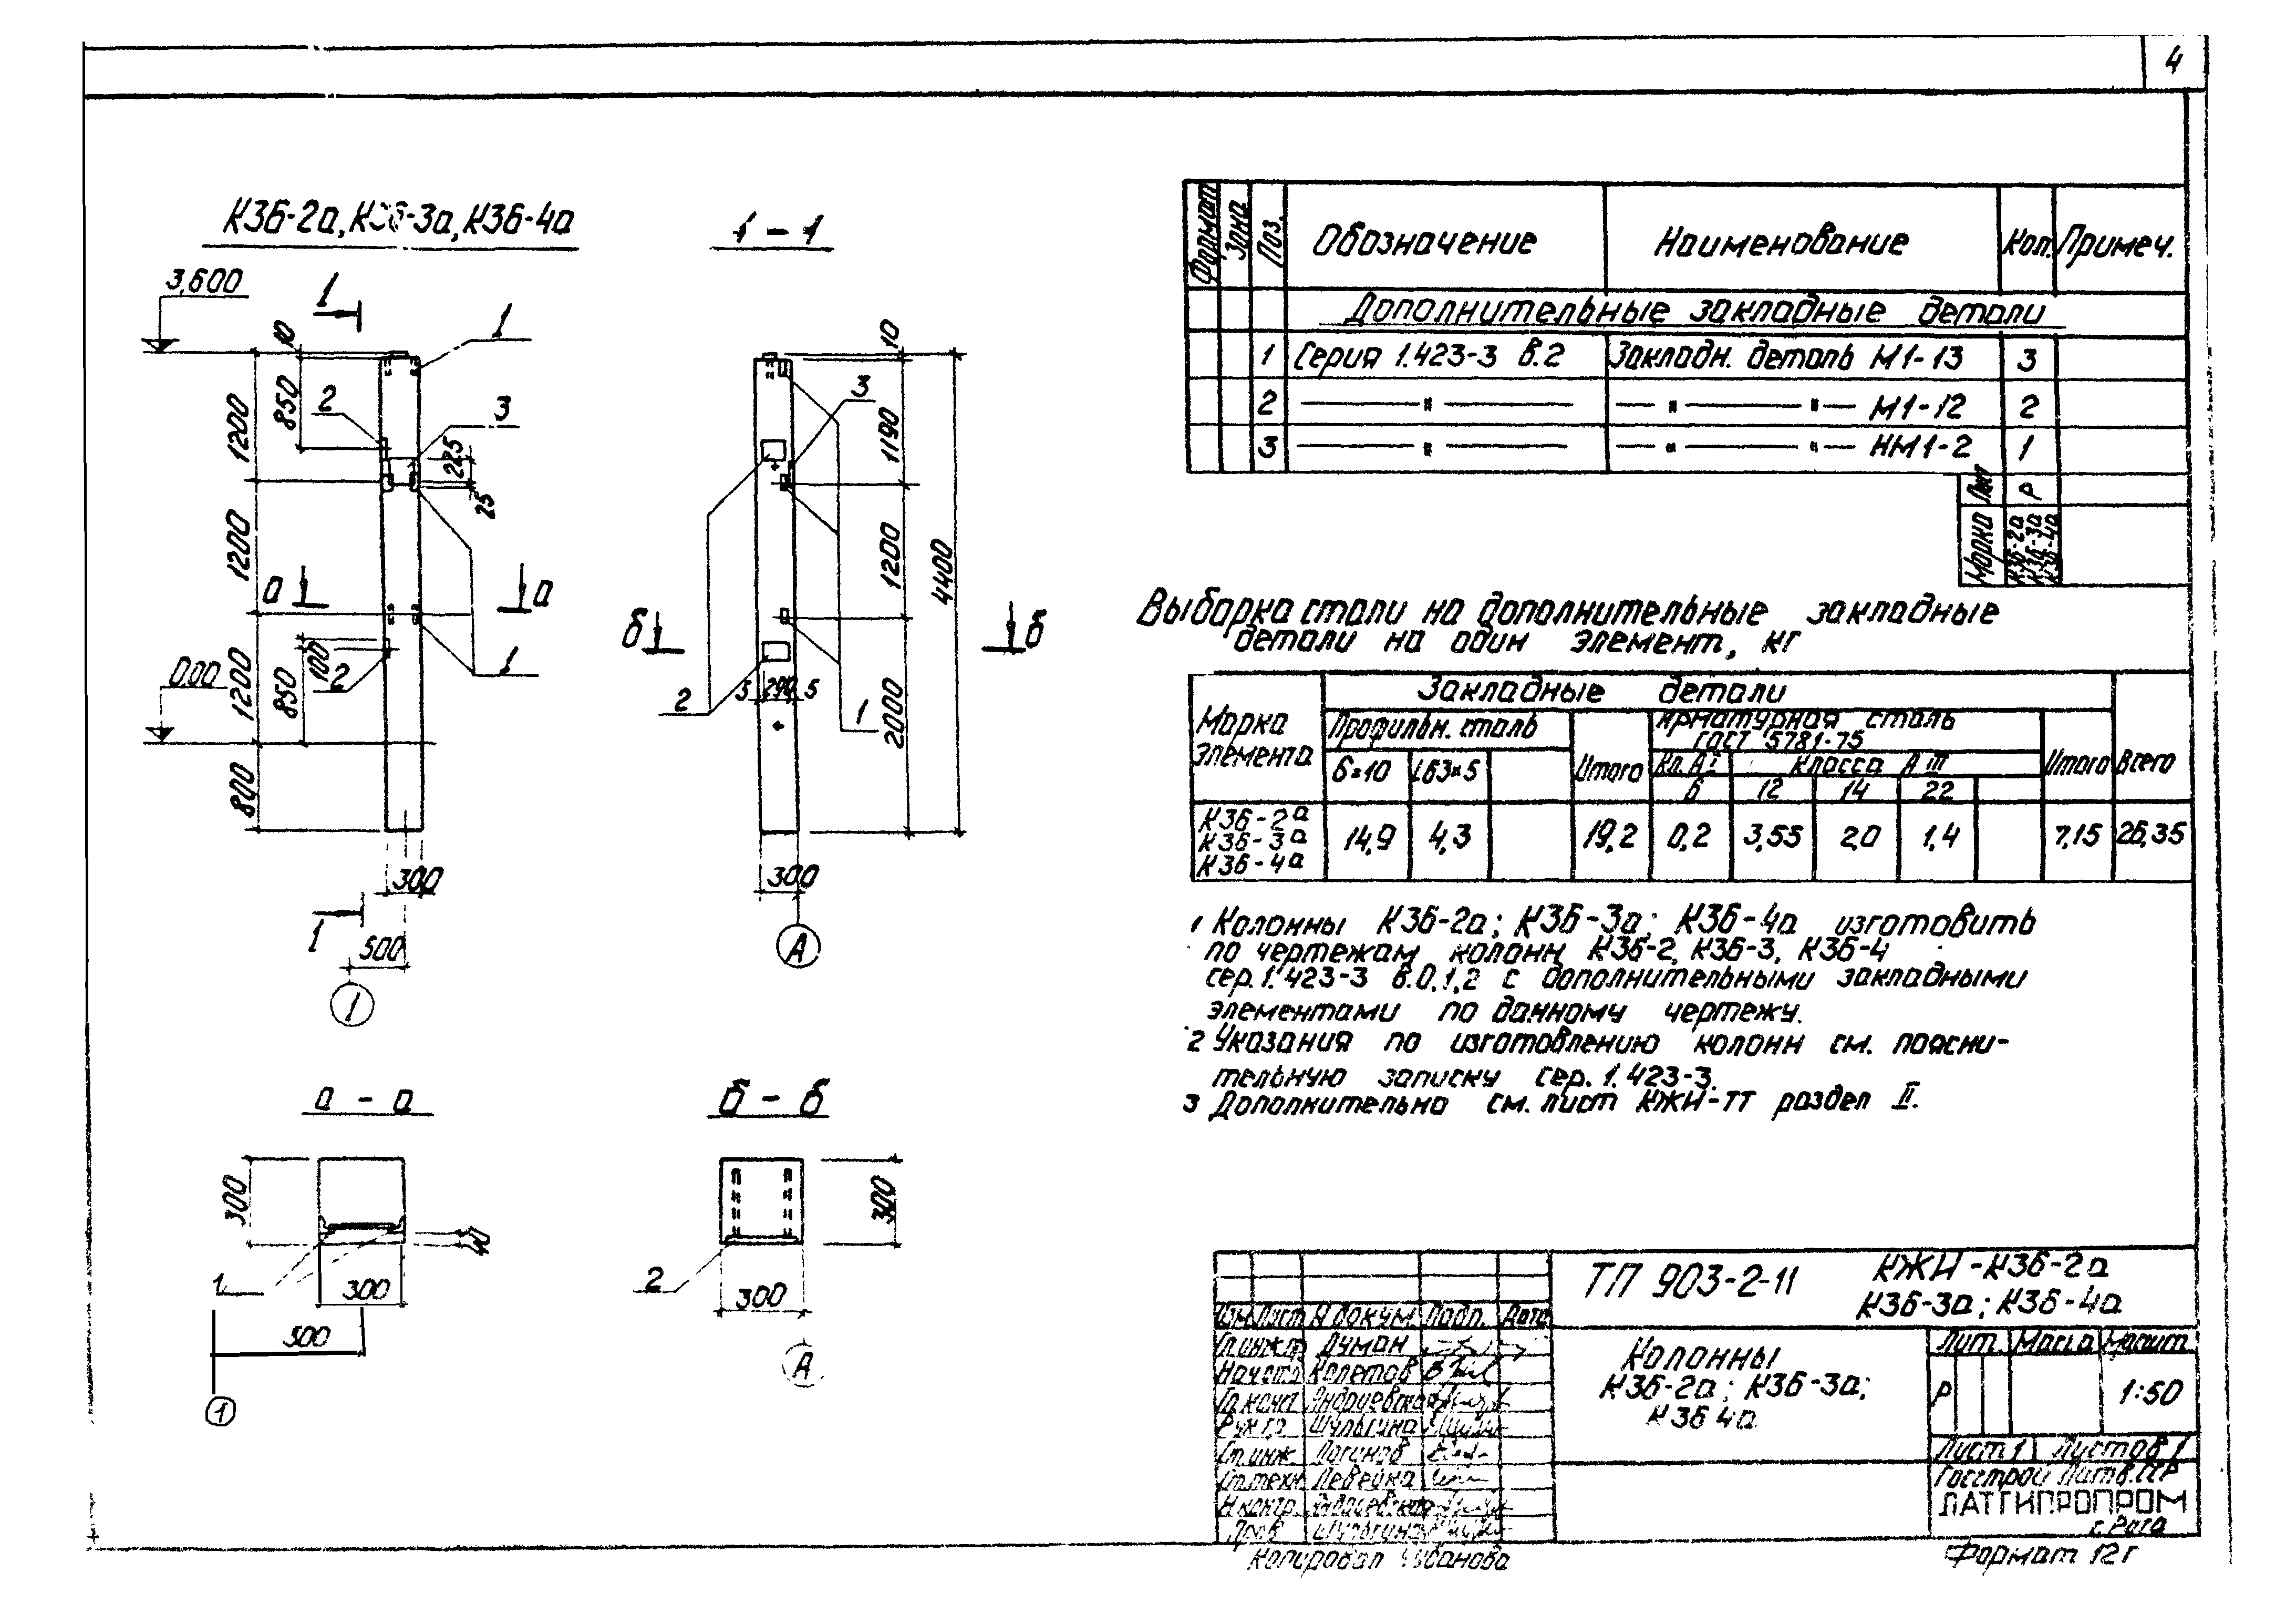 4
К3б-2а, К3б-3а, К3б-4а
1 - 1
3,600
1
1
10
850
1200
2
3
225
25
1200
а
а
100
2
1
0.00
850
1200
800
300
1
500
1
10
3
1190
1200
4400
б
б
2
5 290 5
1
2000
300
А
а - а
300
40
1
300
500
1
б - б
300
2
300
А
Формат
Зона
Поз.
Обозначение
Наименование
Кол.
Примеч.
Дополнительные закладные детали
1 Серия 1.423-3 в.2 Закладн. деталь М1-13 3
2 — " — — " — " — М1-12 2
3 — " — — " — " — НМ1-2 1
Лит Р
Марка К3б-2а К3б-3а К3б-4а
Выборка стали на дополнительные закладные
детали на один элемент, кг
Марка элемента
Закладные детали
Профильн. сталь
Итого
Арматурная сталь
ГОСТ 5781-75
Итого
Всего
б=10
L63×5
Кл. А I
Класса А III
6 12 14 22
К3б-2а
К3б-3а
К3б-4а
14,9 4,3 19,2 0,2 3,55 2,0 1,4 7,15 26,35
1 Колонны К3б-2а; К3б-3а; К3б-4а изготовить
по чертежам колонн К3б-2, К3б-3, К3б-4
сер. 1.423-3 в.0,1,2 с дополнительными закладными
элементами по данному чертежу.
2 Указания по изготовлению колонн см. поясни-
тельную записку сер. 1.423-3.
3 Дополнительно см. лист КЖИ-ТТ раздел II.
ТП 903-2-11
КЖИ-К3б-2а
К3б-3а; К3б-4а
Изм. Лист N докум. Подп. Дата
Гл.инж.п Думан
Нач.отд Колетов
Гл.конст
Рук.гр. Шульгина
Ст.инж. Логинов
Ст.техн. Левейка
Н.контр.
Пров. Шульгина
Колонны
К3б-2а; К3б-3а;
К3б 4а
Лит. Масса Масшт
Р 1:50
Лист 1 Листов 1
Госстрой Латв.ССР
ЛАТГИПРОПРОМ
г. Рига
Копировал
Формат 12г